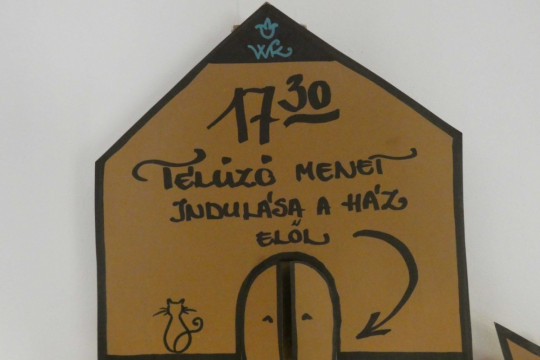 WR
17 30
TÉLŰZŐ MENET
INDULÁSA A HÁZ
ELŐL